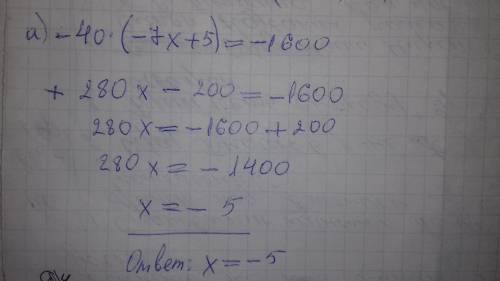 а) -40·(-7x+5)=-1600
+ 280x - 200 = -1600
280x = -1600 + 200
280x = -1400
x = -5
Ответ: x = -5